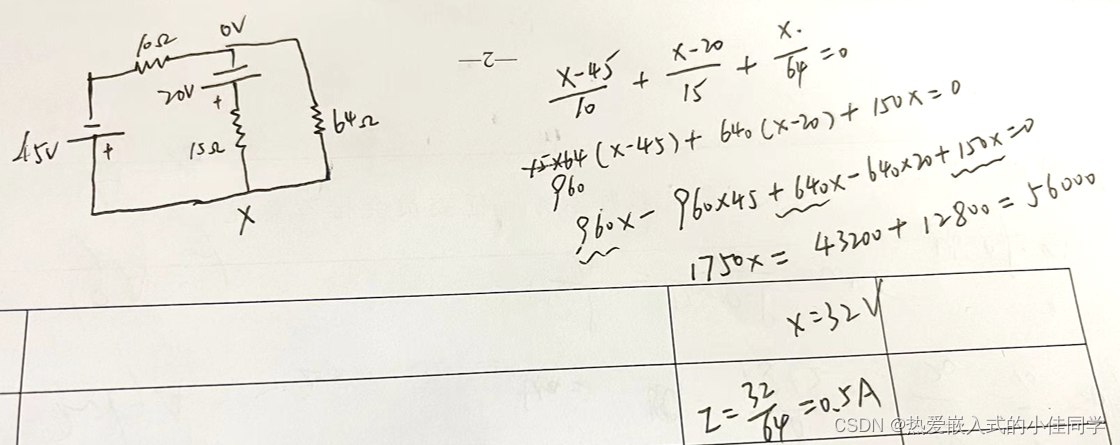 10Ω
0V
20V
+
15Ω
64Ω
45V
+
X
—2—
(x-45)/10 + (x-20)/15 + x/64 = 0
15×64 (x-45) + 640 (x-20) + 150x = 0
960
960x - 960x45 + 640x - 640x20 + 150x = 0
1750x = 43200 + 12800 = 56000
x = 32V
I = 32/64 = 0.5A
CSDN @热爱嵌入式的小佳同学